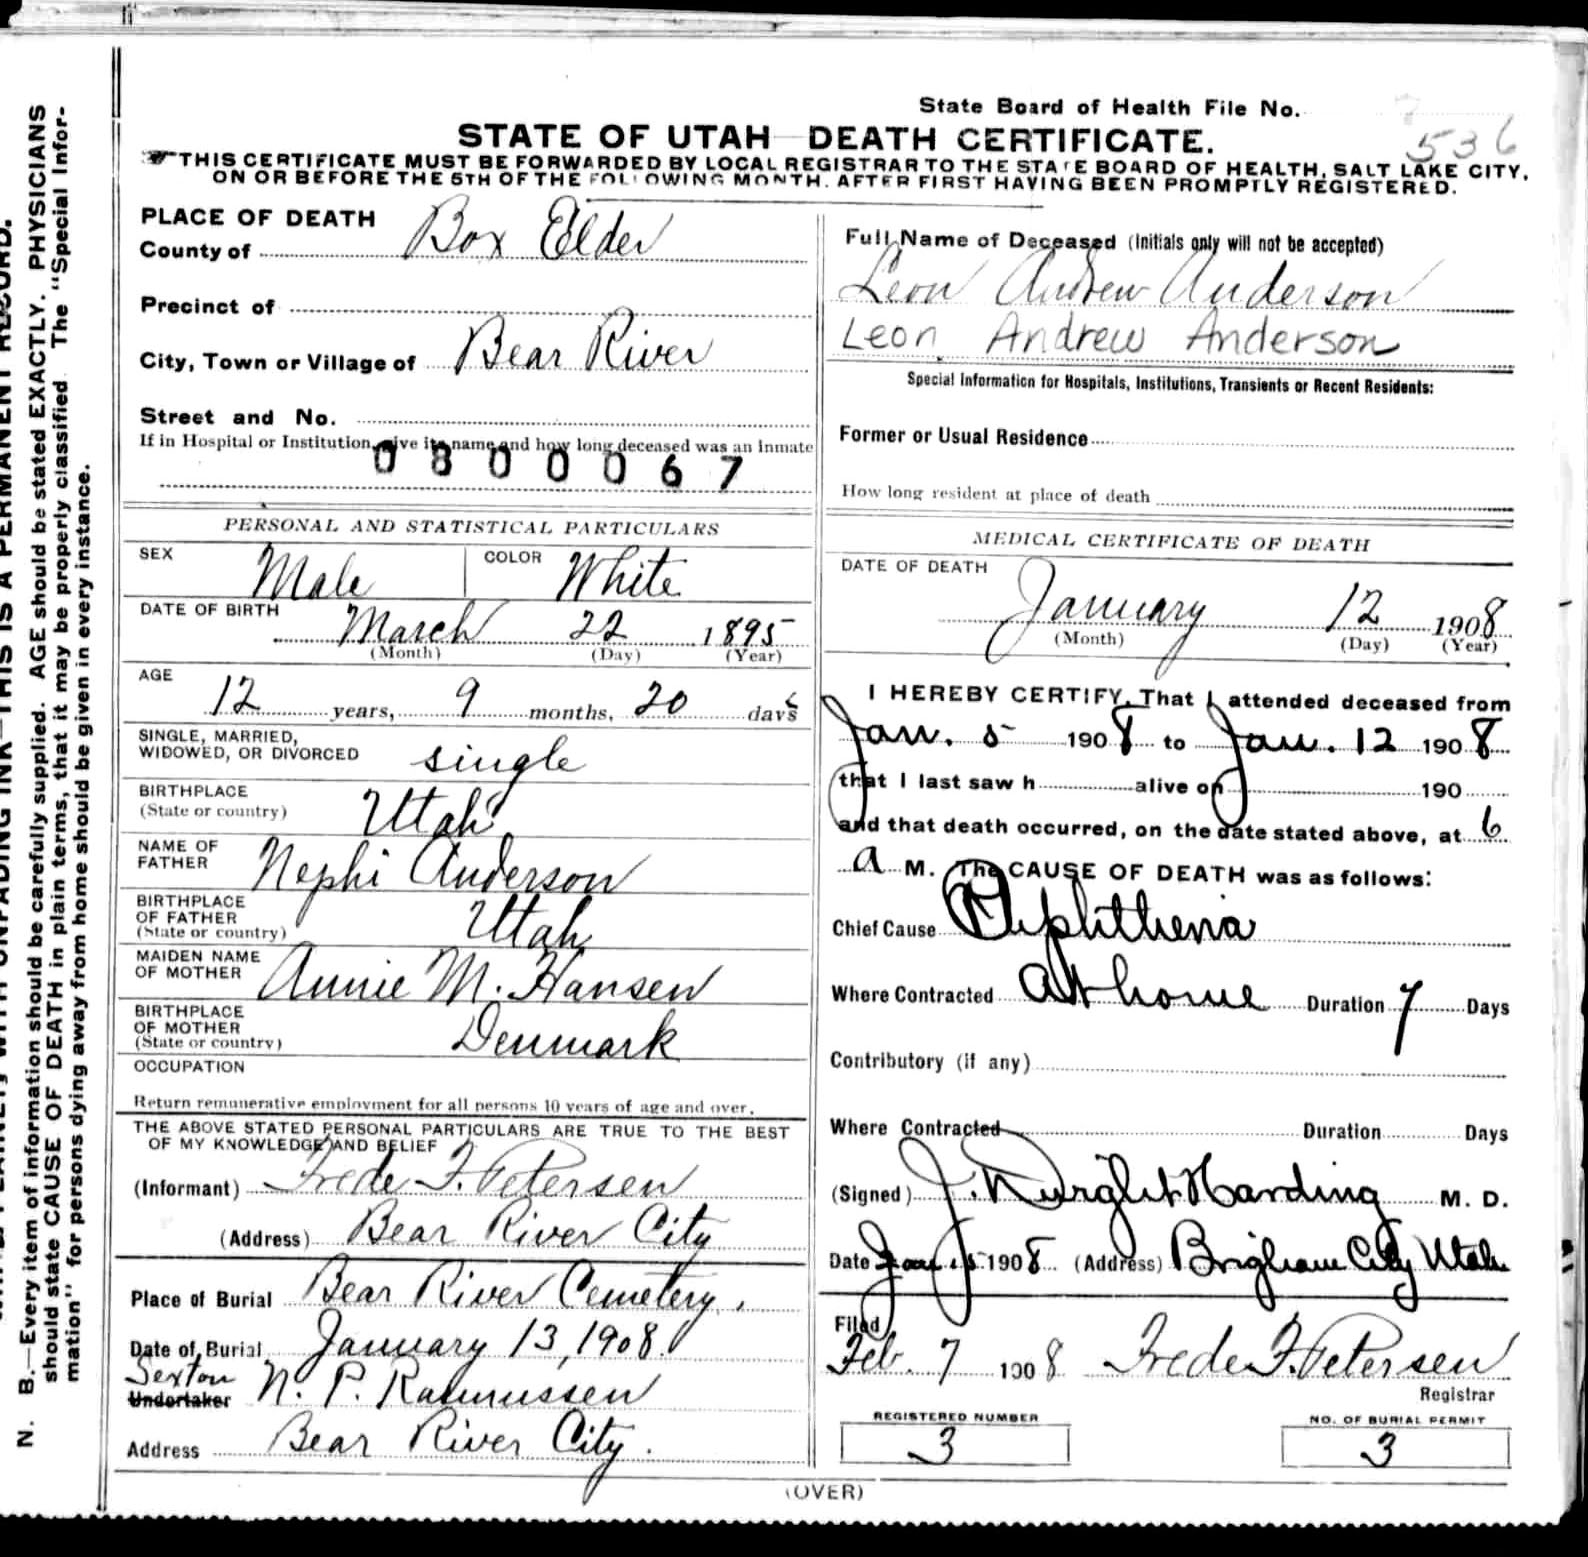 State Board of Health File No.
536
STATE OF UTAH—DEATH CERTIFICATE.
THIS CERTIFICATE MUST BE FORWARDED BY LOCAL REGISTRAR TO THE STATE BOARD OF HEALTH, SALT LAKE CITY,
ON OR BEFORE THE 5TH OF THE FOLLOWING MONTH, AFTER FIRST HAVING BEEN PROMPTLY REGISTERED.
PLACE OF DEATH
County of Box Elder
Precinct of
City, Town or Village of Bear River
Street and No.
If in Hospital or Institution, give its name and how long deceased was an inmate
0800067
PERSONAL AND STATISTICAL PARTICULARS
SEX Male COLOR White
DATE OF BIRTH March 22 1895
(Month) (Day) (Year)
AGE
12 years, 9 months, 20 days
SINGLE, MARRIED,
WIDOWED, OR DIVORCED single
BIRTHPLACE
(State or country) Utah
NAME OF
FATHER Nephi Anderson
BIRTHPLACE
OF FATHER
(State or country) Utah
MAIDEN NAME
OF MOTHER Annie M. Hansen
BIRTHPLACE
OF MOTHER
(State or country) Denmark
OCCUPATION
Return remunerative employment for all persons 10 years of age and over.
THE ABOVE STATED PERSONAL PARTICULARS ARE TRUE TO THE BEST
OF MY KNOWLEDGE AND BELIEF
(Informant) Frede F. Petersen
(Address) Bear River City
Place of Burial Bear River Cemetery.
Date of Burial January 13, 1908.
Sexton
Undertaker N. P. Rasmussen
Address Bear River City.
Full Name of Deceased (Initials only will not be accepted)
Leon Andrew Anderson
Leon Andrew Anderson
Special Information for Hospitals, Institutions, Transients or Recent Residents:
Former or Usual Residence
How long resident at place of death
MEDICAL CERTIFICATE OF DEATH
DATE OF DEATH
January 12 1908
(Month) (Day) (Year)
I HEREBY CERTIFY, That I attended deceased from
Jan. 5 1908 to Jan. 12 1908
that I last saw h alive on 190
and that death occurred, on the date stated above, at 6
a M. The CAUSE OF DEATH was as follows:
Chief Cause Diphtheria
Where Contracted At home Duration 7 Days
Contributory (if any)
Where Contracted Duration Days
(Signed) J. Dwight Harding M. D.
Date Jan 15 1908 (Address) Brigham City Utah
Filed
Feb. 7 1908 Frede F. Petersen
Registrar
REGISTERED NUMBER
3
NO. OF BURIAL PERMIT
3
(OVER)
N. B.—Every item of information should be carefully supplied. AGE should be stated EXACTLY. PHYSICIANS
should state CAUSE OF DEATH in plain terms, that it may be properly classified. The "Special Infor-
mation" for persons dying away from home should be given in every instance.